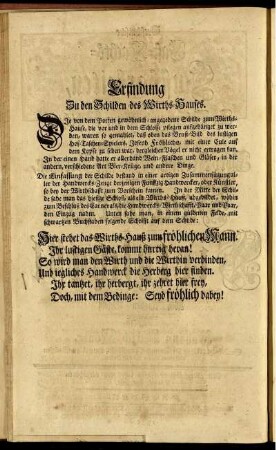 Erfindung
Zu den Schilden des Wirths-Hauses.
Die von dem Parten gewöhnlich angegebene Schilde zum Wirths-
Hauß, die vor und in dem Schlosse pflegen aufgehänget zu wer-
den, waren so gemahlet, daß oben das Brust-Bild des lustigen
Hof-Taschen-Spielers, Joseph Fröhlichs, mit einer Eule auf
dem Kopfe zu sehen war, dergleichen Vögel er nicht vertragen kan.
In der einen Hand hatte er allerhand Wein-Flaschen und Gläser, in der
andern, verschiedene Art Bier-Krüge, und andere Dinge.
Die Einfassung der Schilde bestand in einer artigen Zusammenfügung al-
ler der Handwercks-Zeuge derjenigen Handwercker, oder Künstler,
so bey der Wirthschafft zum Vorschein kamen. In der Mitte der Schil-
de sahe man das hiesige Schloß, als das Wirths-Hauß, abgebildet, wohin
den Einzug nahm. Unten sahe man, in einem güldenen Felde, mit
schwartzen Buchstaben folgende Schrifft auf dem Schilde:
Hier stehet das Wirths-Hauß zum fröhlichen Mann.
Ihr lustigen Gäste, kommt hurtig heran!
So wird man den Wirth und die Wirthin verbinden,
Und iegliches Handwerck die Herberg hier finden.
Ihr tantzet, ihr herbergt, ihr zehret hier frey,
Doch, mit dem Bedinge: Seyd fröhlich dabey!